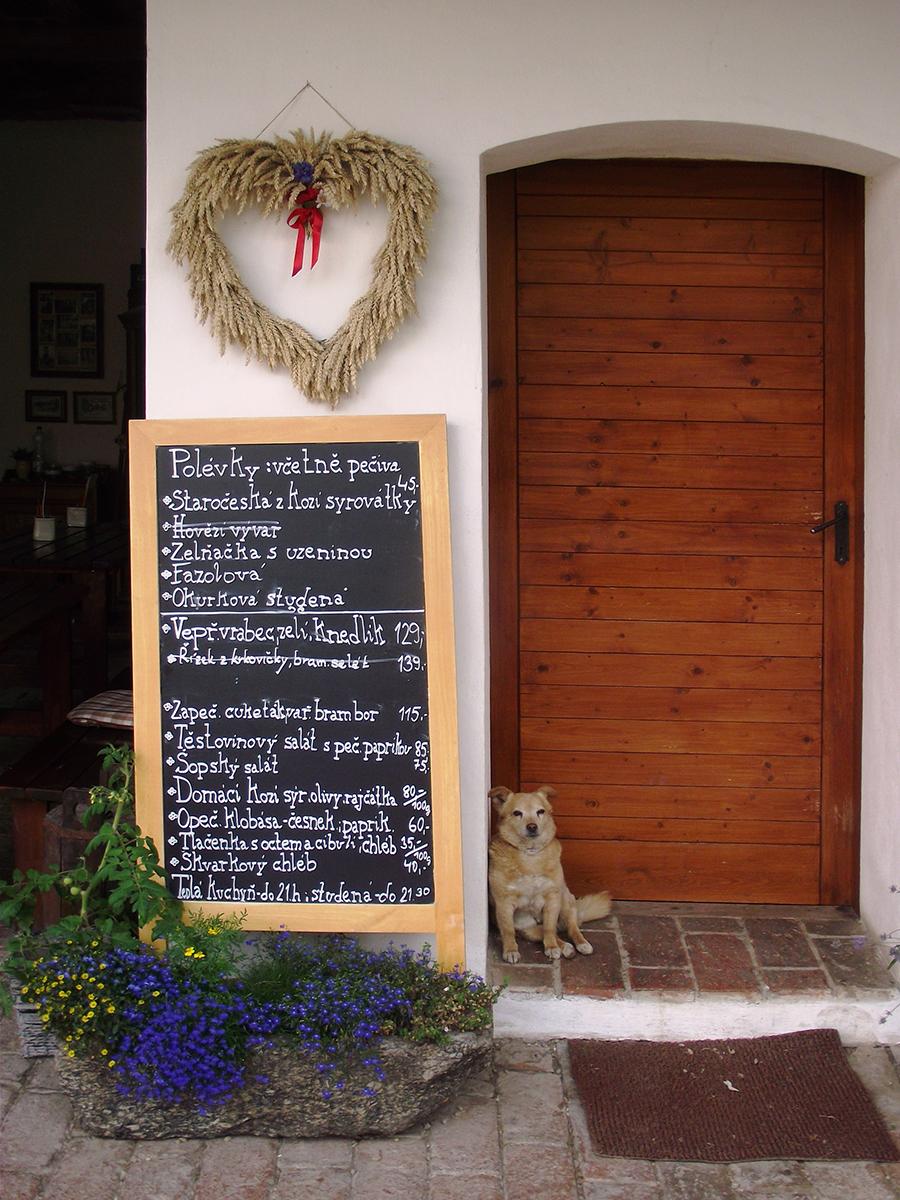 Polévky : včetně pečiva
45,-
Staročeská z kozí syrovátky
Hovězí vývar
Zelňačka s uzeninou
Fazolová
Okurková studená
Vepř. vrabec, zelí, knedlík 129,-
Řízek z krkovičky, bram. salát 139,-
Zapeč. cuketa, kvař. brambor 115,-
Těstovinový salát s peč. paprikou 85,-
Šopský salát 75,-
Domácí kozí sýr, olivy, rajčátka 80,-/100g
Opeč. klobása-česnek, paprik. 60,-
Tlačenka s octem a cibulí, chléb 35,-/100g
Škvarkový chléb 40,-
Teplá kuchyň-do 21.h ; studená-do 21.30